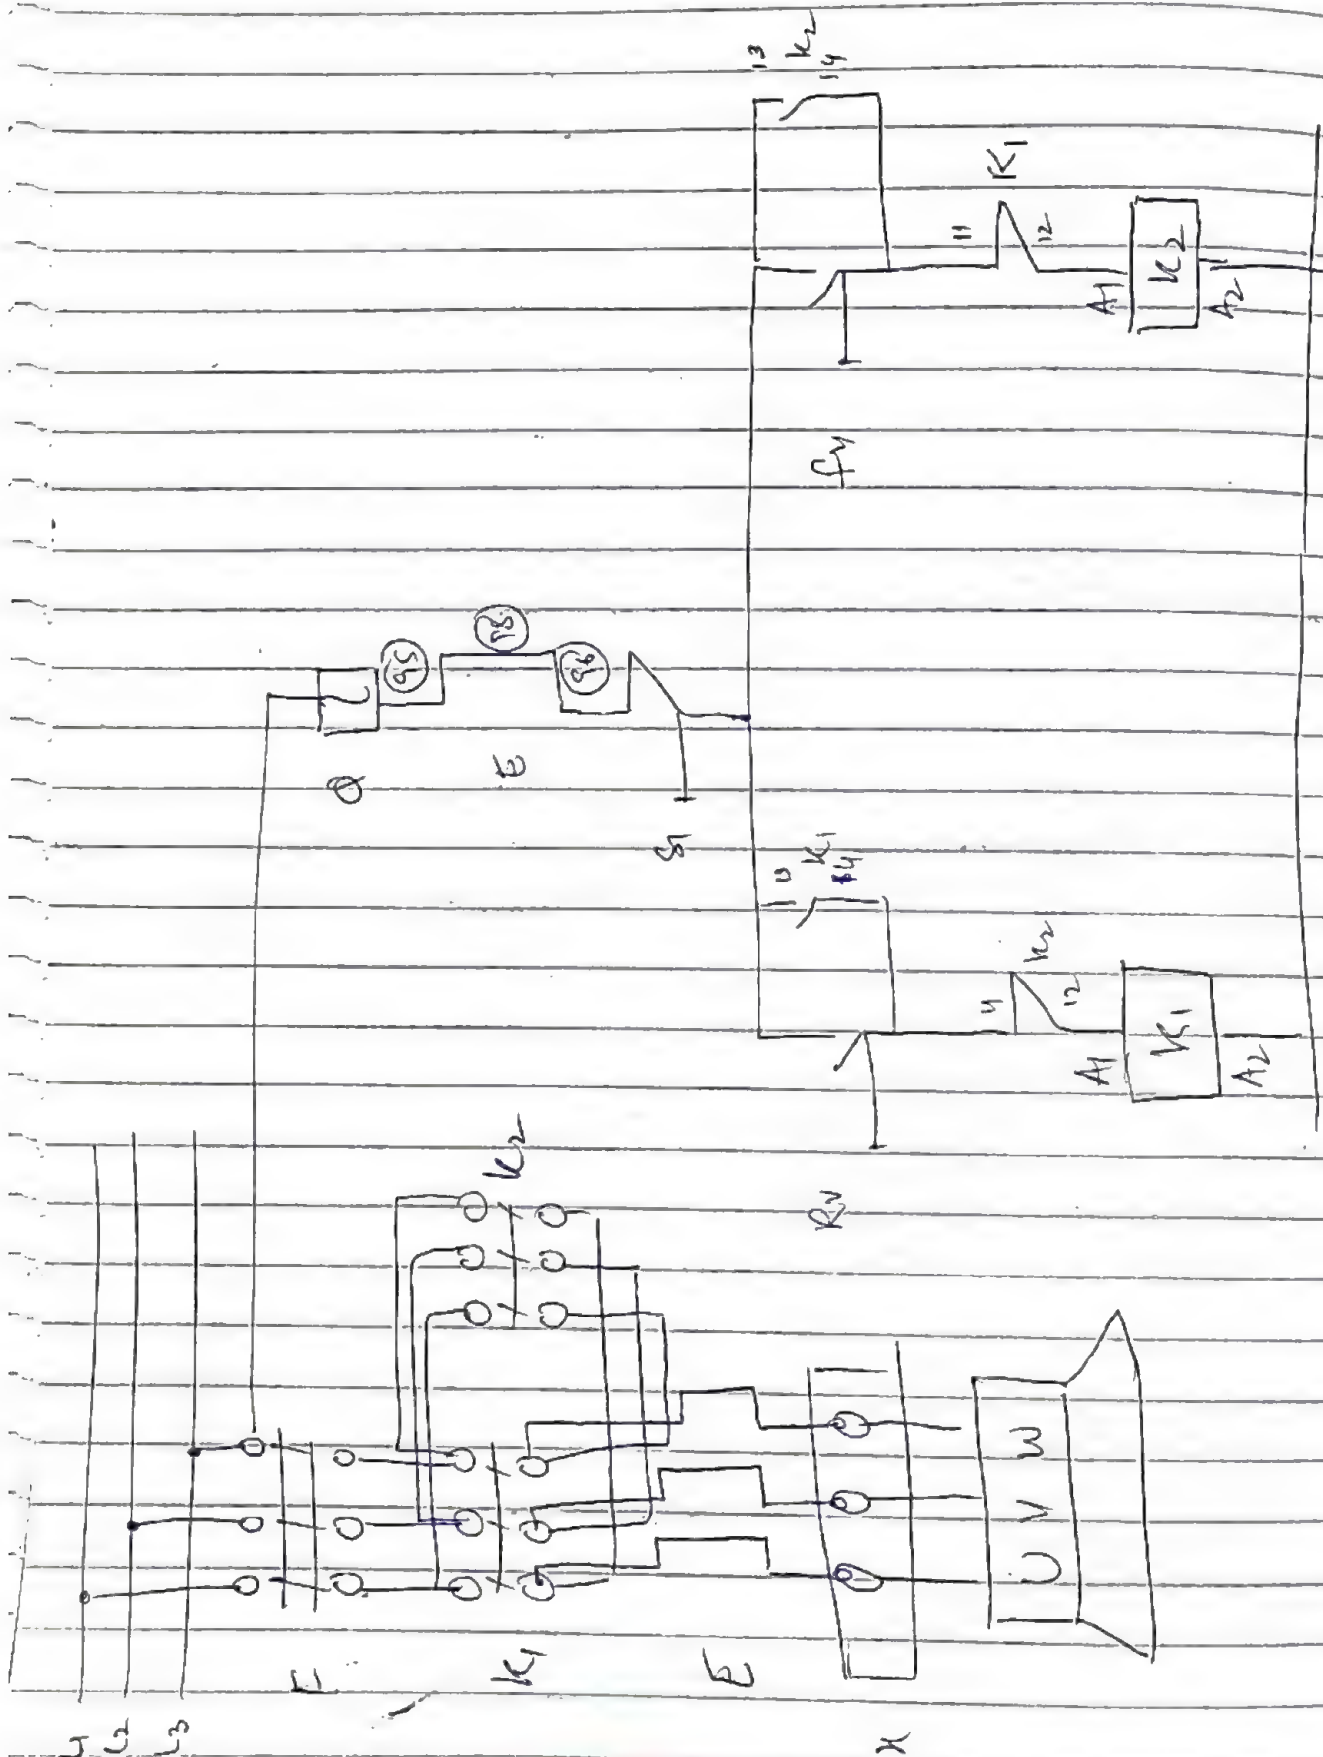 L1
L2
L3
K1
K2
E
X
U V W
Q
95
98
96
E
S1
Rv
K1
14
K2
12
A1
K1
A2
13
K2
14
11
K1
12
A1
K2
A2